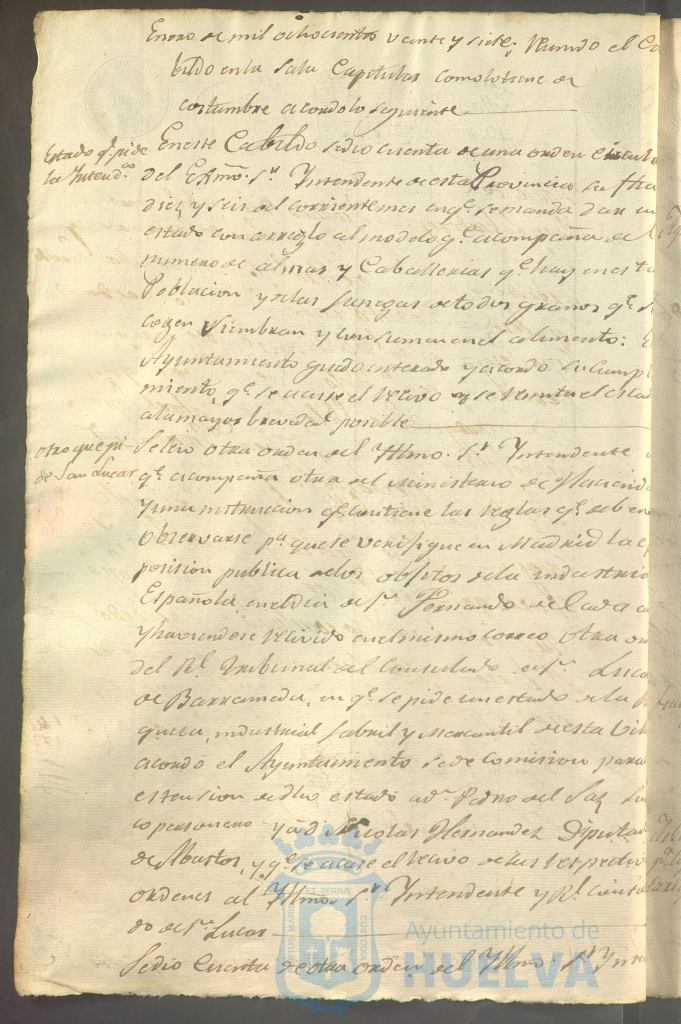 Enero de mil ochocientos veinte y siete; Reunido el Ca
bildo en la Sala Capitular como lo tiene de
costumbre acordo lo siguiente
Estado q.e pide
la Intend.a
En este Cabildo se dio cuenta de una orden
del Exmo. S.r Yntendente de esta Provincia su fha
diez y seis del corriente mes en q.e se manda dar un
estado con arreglo al modelo q.e acompaña de l
numero de almas y Caballerias q.e hay en esta
Poblacion y de las fanegas de todos granos q.e
cogen siembran y consumen en el alimento:
Ayuntamiento quedo enterado y acordo su Cumpl
miento, q.e se acuse el recivo y se remita el estad
a la mayor brevedad posible
Otro que pi-
de San Lucar
Se leio otra orden del Yllmo. S.r Yntendente
q.e acompaña otra del Ministerio de Hacienda
y una instruccion q.e contiene las reglas q.e deben
observarse p.a que se verifique en Madrid la e
posision publica de los objetos de la industria
Española, en el dia de S.n Fernando de cada a
y haviendose recivido en el mismo correo otra or
del R.l Tribunal del Consulado de S.n Lucar
de Barrameda, en q.e se pide un estado de la R
queza, industrial fabril y Mercantil de esta Vill
acordo el Ayuntamiento se de comision para
estension de dho estado a d.n Pedro del Saz Sin
co personero y a d.n Nicolas Hernandez Diputad
de Abastos, y q.e se acuse el recivo de las respectiv
ordenes al Yllmo. S.r Yntendente y R.l Consula
do de S.n Lucar
Se dio Cuenta de otra orden del Yllmo. S.r Ynten
Ayuntamiento de
HUELVA